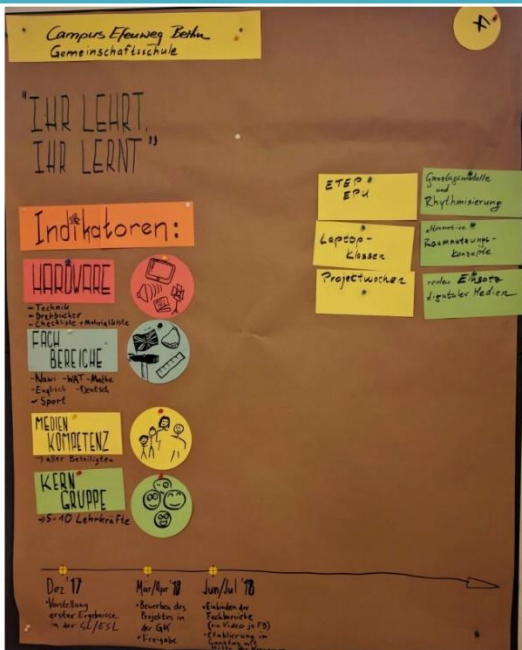 Campus Efeuweg Berlin
Gemeinschaftsschule
"IHR LEHRT,
IHR LERNT"
Indikatoren:
HARDWARE
- Technik
- Drehbücher
- Checkliste + Materialliste
FACH
BEREICHE
- Nawi - WAT - Mathe
- Englisch - Deutsch
- Sport
MEDIEN
KOMPETENZ
→ aller Beteiligten
KERN
GRUPPE
→ 5-10 Lehrkräfte
ETEP
EPU
Laptop-
klassen
Projektwochen
Ganztagsmodelle
und
Rhythmisierung
alternative
Raumnutzungs-
konzepte
Einsatz
digitaler Medien
Dez '17
• Vorstellung
erster Ergebnisse
in der SL/ESL
Mär/Apr '18
• Bewerben des
Projektes in
der GK
• Freigabe
Jun/Jul '18
• Einbinden der
Fachbereiche
(ein Video je FB)
• Etablierung im
Ganztag mit